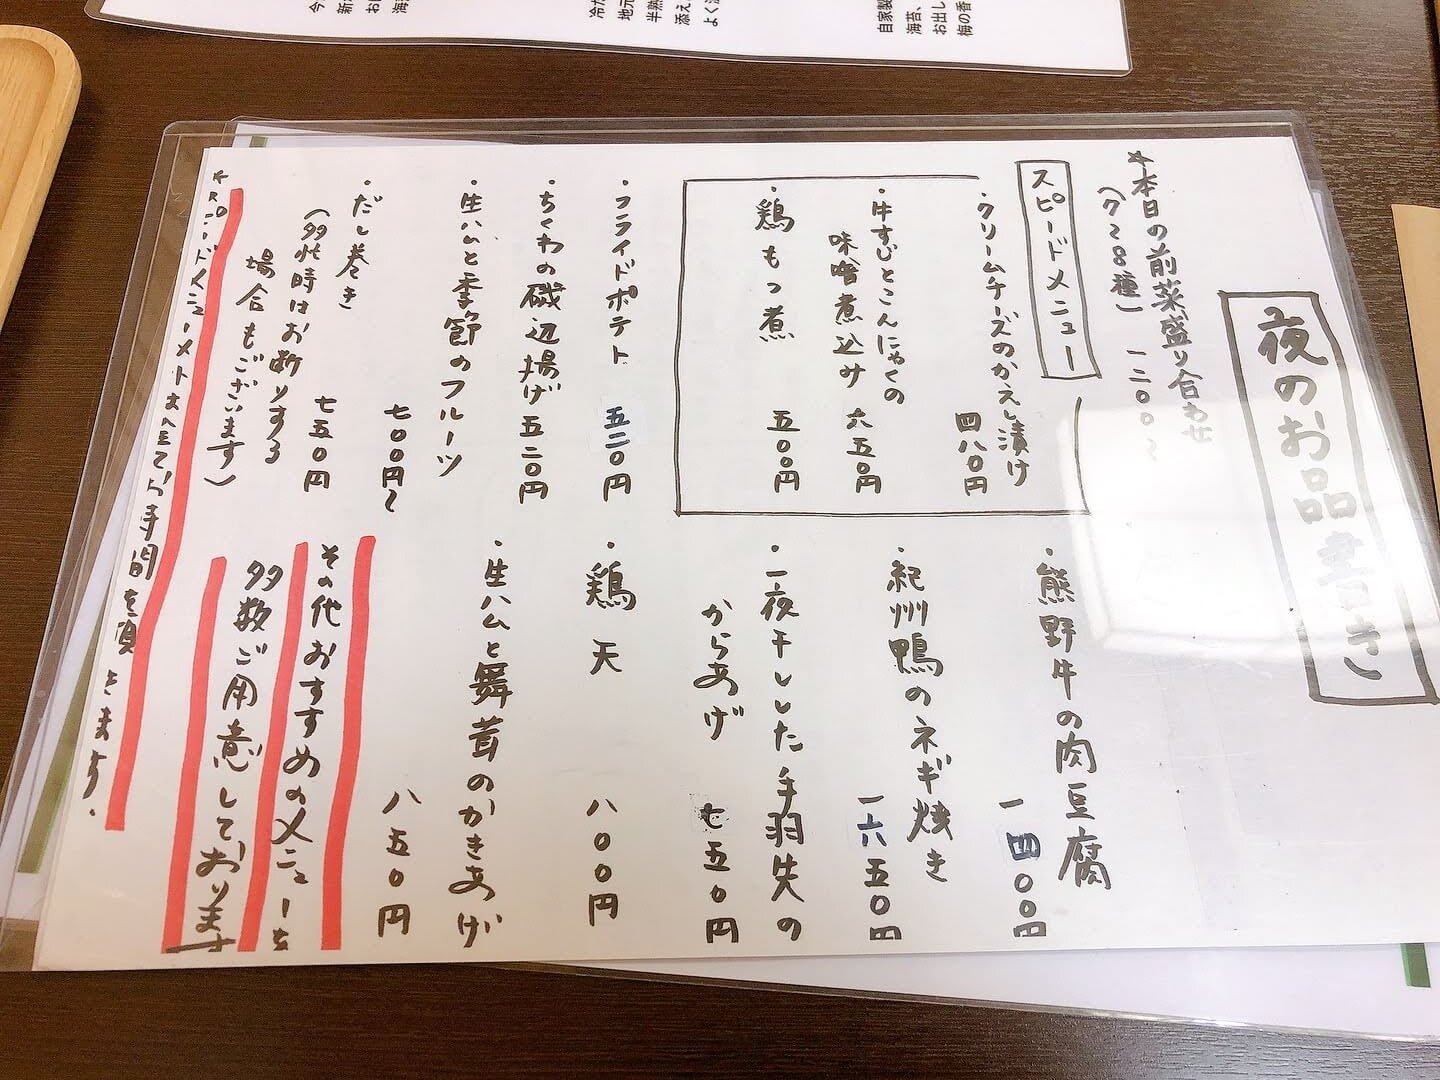 夜のお品書き
*本日の前菜盛り合わせ
(7〜8種) 一二〇〇〜
スピードメニュー
・クリームチーズのかえし漬け
四八〇円
・牛すじとこんにゃくの
味噌煮込み 六五〇円
・鶏もつ煮 五〇〇円
・フライドポテト 五二〇円
・ちくわの磯辺揚げ 五二〇円
・生ハムと季節のフルーツ
七〇〇円〜
・だし巻き 七五〇円
(多忙時はお断りする
場合もございます)
・熊野牛の肉豆腐
一四〇〇円
・紀州鴨のネギ焼き
一六五〇円
・一夜干しした手羽先の
からあげ 七五〇円
・鶏天 八〇〇円
・生ハムと舞茸のかきあげ
八五〇円
その他おすすめのメニューを
多数ご用意しております
*スピードメニュー以外は全てお時間を頂きます。
今
新
お
海
冷
地元
半熟
添え
よく
自家製
海苔、
お出し
梅の香